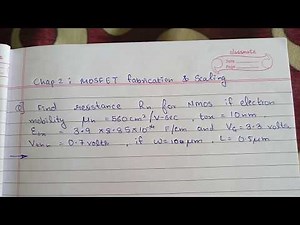 classmate
Chap 2 : MOSFET Fabrication & Scaling
Q) Find resistance Rn for Nmos if electron
mobility μn = 560 cm²/V-sec, tox = 10nm
= 3.9 × 8.85 × 10 F/cm and VG = 3.3 volts,
= 0.7 volts, if W = 10 μm, L = 0.5μm
→